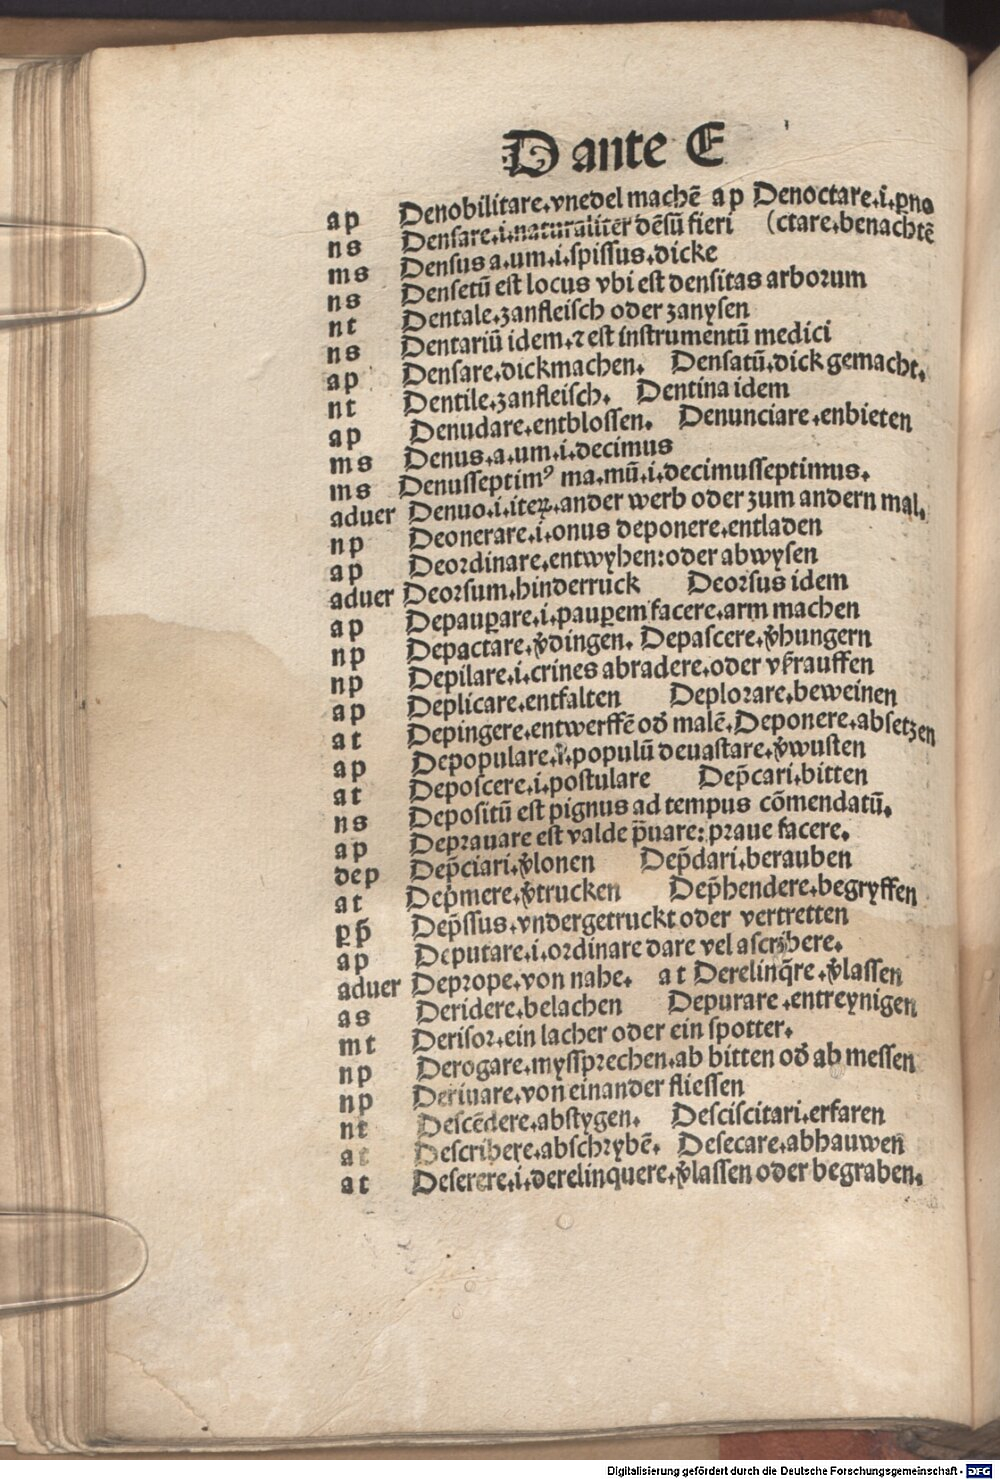 D ante E
ap Denobilitare.vnedel machē ap Denoctare.i.ꝑno
ns Densare.i.naturaliter dēsū fieri (ctare.benachtē
ms Densus a.um.i.spissus.dicke
ns Densetū est locus vbi est densitas arborum
nt Dentale.zanfleisch oder zanysen
ns Dentariū idem.⁊ est instrumentū medici
ap Densare.dickmachen. Densatū.dick gemacht.
nt Dentile.zanfleisch. Dentina idem
ap Denudare.entblossen. Denunciare.enbieten
ms Denus.a.um.i.decimus
ms Denusseptimꝰ ma.mū.i.decimusseptimus.
aduer Denuo.i.iteꝝ.ander werb oder zum andern mal.
np Deonerare.i.onus deponere.entladen
ap Deordinare.entwyhen:oder abwysen
aduer Deorsum.hinderruck Deorsus idem
ap Depauꝑare.i.pauꝑem facere.arm machen
np Depactare.v̄dingen. Depascere.v̄hungern
np Depilare.i.crines abradere.oder vs̄rauffen
ap Deplicare.entfalten Deplorare.beweinen
at Depingere.entwerffē od̄ malē.Deponere.absetzen
ap Depopulare.i.populū deuastare.v̄wusten
at Deposcere.i.postulare Dep̄cari.bitten
ns Depositū est pignus ad tempus cōmendatū.
ap Deprauare est valde p̄uare:praue facere.
dep Dep̄ciari.v̄lonen Dep̄dari.berauben
at Dep̄mere.v̄trucken Dep̄hendere.begryffen
ꝑp̄ Dep̄ssus.vndergetruckt oder vertretten
ap Deputare.i.ordinare dare vel ascribere.
aduer Deprope.von nahe. at Derelinq̄re.v̄lassen
as Deridere.belachen Depurare.entreynigen
mt Derisor.ein lacher oder ein spotter.
np Derogare.myssprechen.ab bitten od̄ ab messen
np Deriuare.von einander fliessen
nt Descēdere.abstygen. Desciscitari.erfaren
at Describere.abschrybē. Desecare.abhauwen
at Deserere.i.derelinquere.v̄lassen oder begraben.
Digitalisierung gefördert durch die Deutsche Forschungsgemeinschaft - DFG